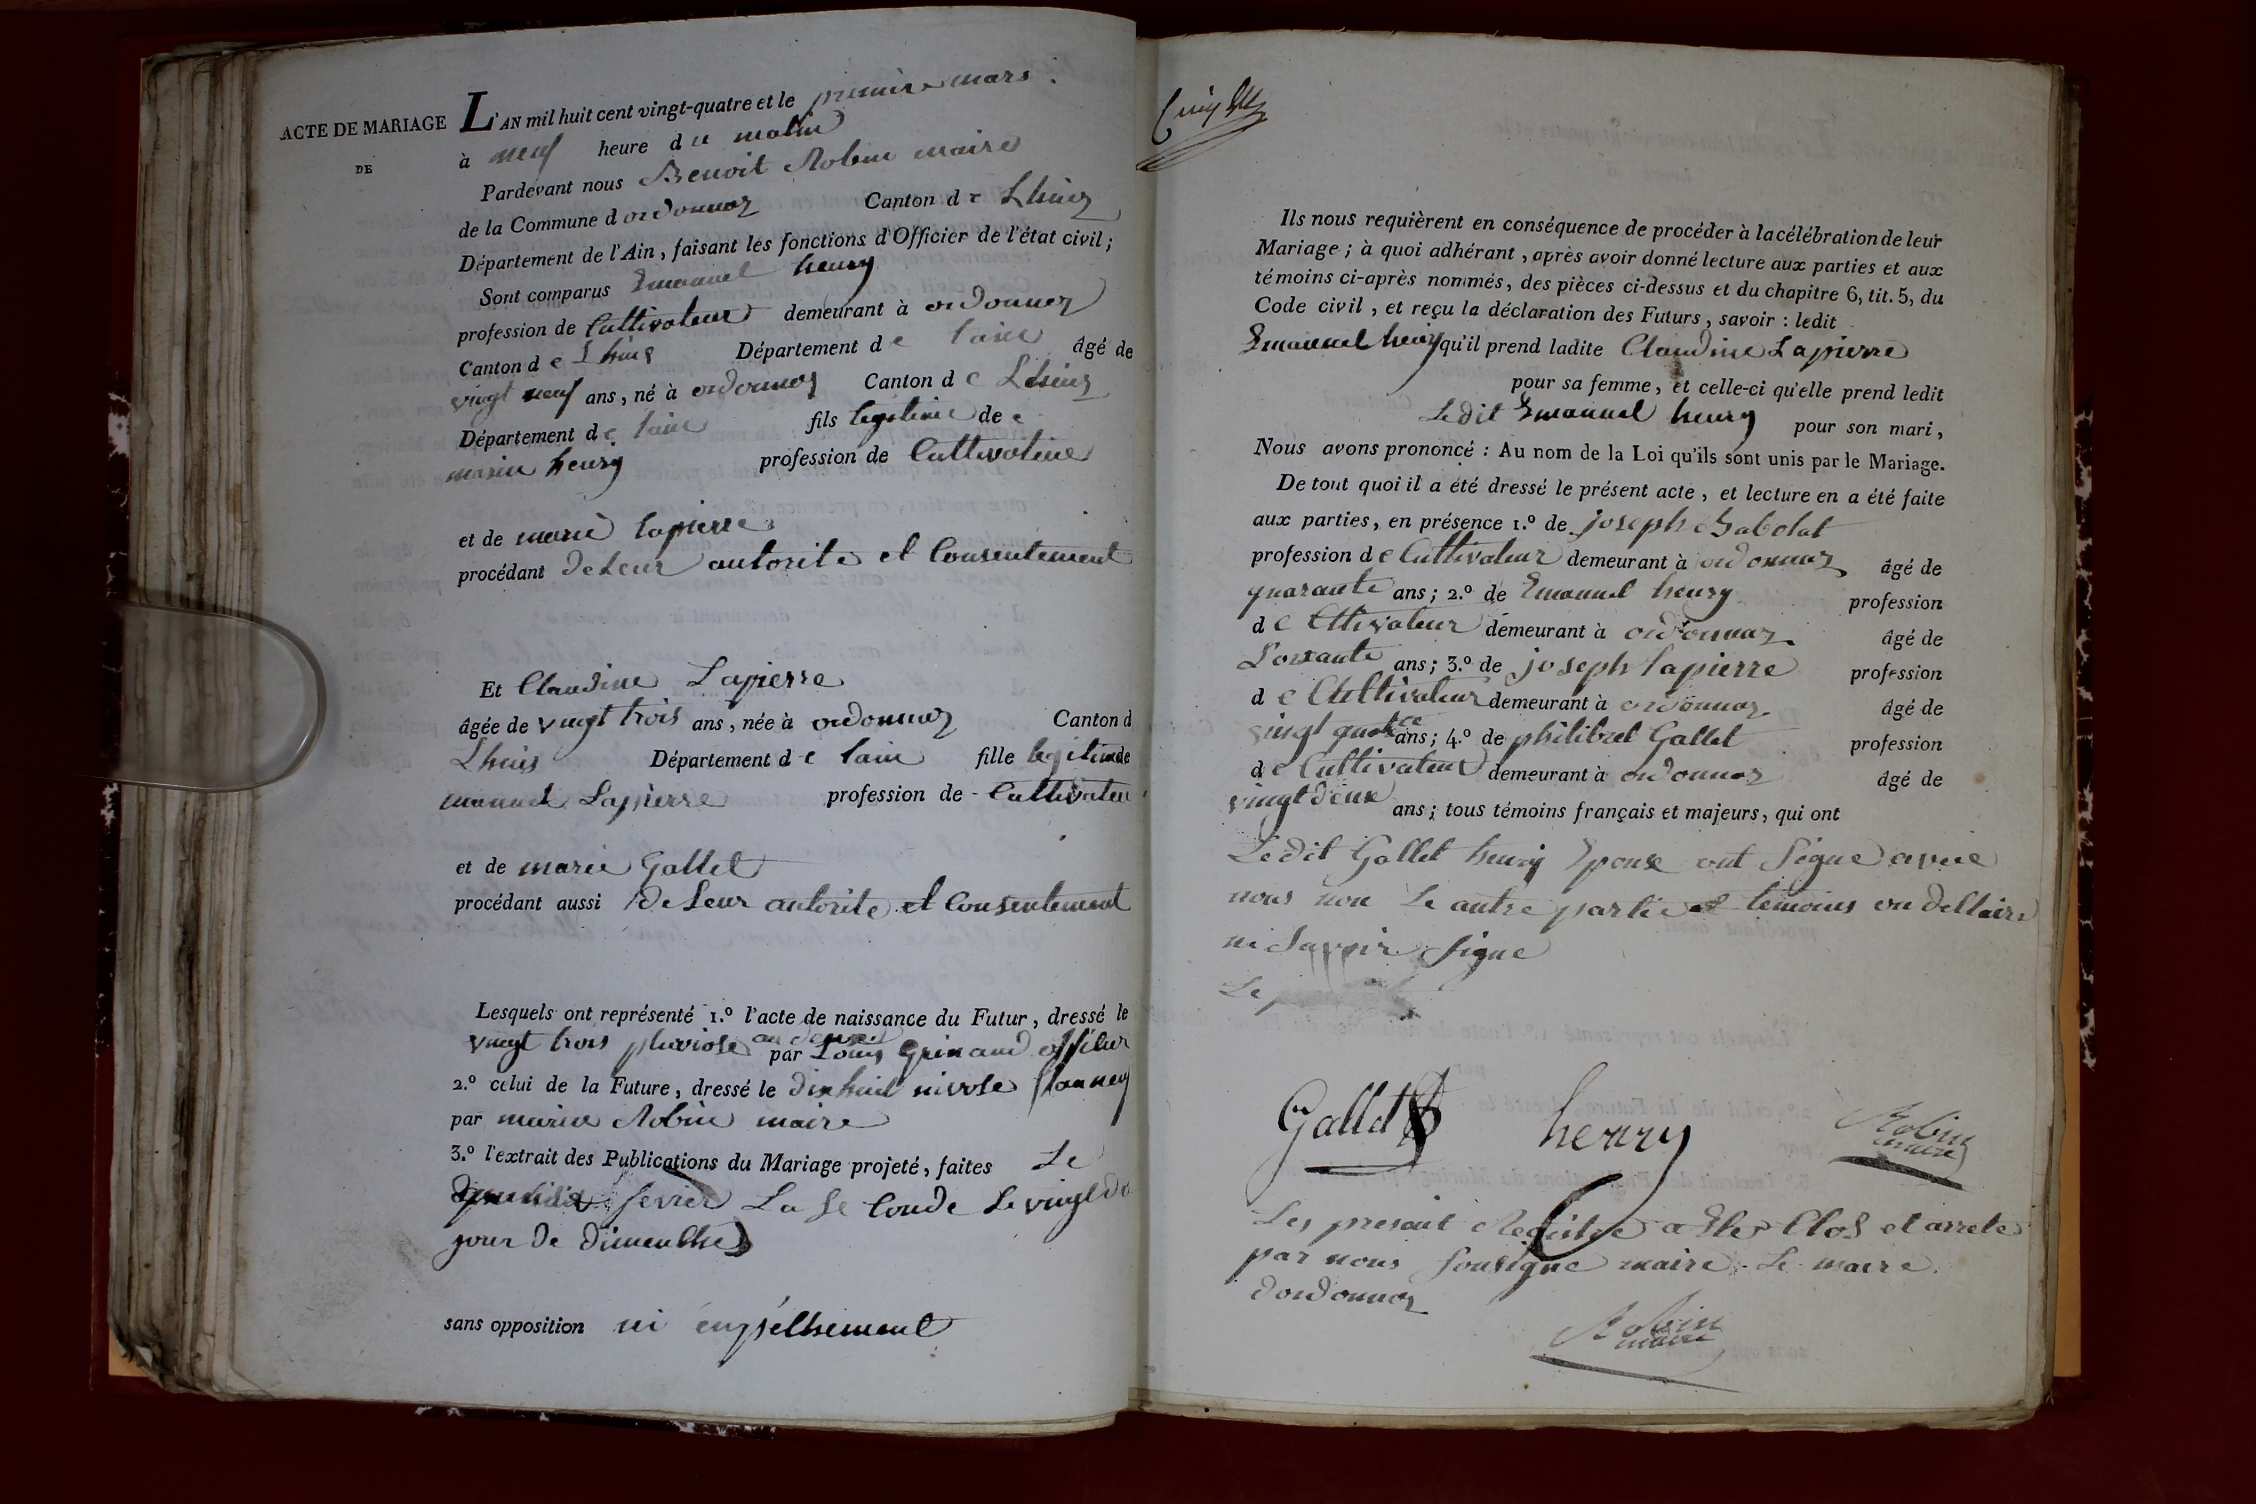 ACTE DE MARIAGE
DE
L'AN mil huit cent vingt-quatre et le premire mars
à neuf heure du matin
Pardevant nous Benoit Robin maire
de la Commune d ordonnaz Canton de Lhuis
Département de l'Ain, faisant les fonctions d'Officier de l'état civil;
Sont comparus Emanuel henry
profession de Cultivateur demeurant à ordonnaz
Canton de Lhuis Département de lain âgé de
vingt neuf ans, né à ordonnaz Canton de Lhuis
Département de lain fils legitime de
marin henry profession de Cultivateur
et de marie lapierre
procédant de Leur autorite et Consentement
Et Claudine Lapierre
âgée de vingt trois ans, née à ordonnaz Canton d
Lhuis Département de lain fille legitime de
Lapierre profession de Cultivateu
et de marie Gallet
procédant aussi de Leur autorite et Consentement
Lesquels ont représenté 1.º l'acte de naissance du Futur, dressé le
vingt trois pluviose an deux par Louis Grinand officier
2.º celui de la Future, dressé le dix huit nivose
par marin Robin maire
3.º l'extrait des Publications du Mariage projeté, faites Le
fevrier La se Conde Le vingt
jour de dimenthe
sans opposition ni empelhement
Ils nous requièrent en conséquence de procéder à la célébration de leur
Mariage; à quoi adhérant, après avoir donné lecture aux parties et aux
témoins ci-après nommés, des pièces ci-dessus et du chapitre 6, tit. 5, du
Code civil, et reçu la déclaration des Futurs, savoir: ledit
Emanuel henry qu'il prend ladite Claudine Lapierre
pour sa femme, et celle-ci qu'elle prend ledit
Ledit Emanuel henry pour son mari,
Nous avons prononcé: Au nom de la Loi qu'ils sont unis par le Mariage.
De tout quoi il a été dressé le présent acte, et lecture en a été faite
aux parties, en présence 1.º de joseph Babolat
profession de Cultivateur demeurant à ordonnaz âgé de
quarante ans; 2.º de Emanuel henry profession
de Cttivateur demeurant à ordonnaz âgé de
Soixante ans; 3.º de joseph lapierre profession
de Cultivateur demeurant à ordonnaz âgé de
vingt quatre ans; 4.º de philibert Gallet profession
de Cultivateur demeurant à ordonnaz âgé de
vingt deux ans; tous témoins français et majeurs, qui ont
Ledit Gallet henry Epoux ont Signe avec
nous non Le autre partie et temoins
ni Savoir signe
Le
Gallet henry Robin
maire
Les present Registre a Ete Clos et arrete
par nous Sousigne maire Le maire
dordonnaz
Robin
maire